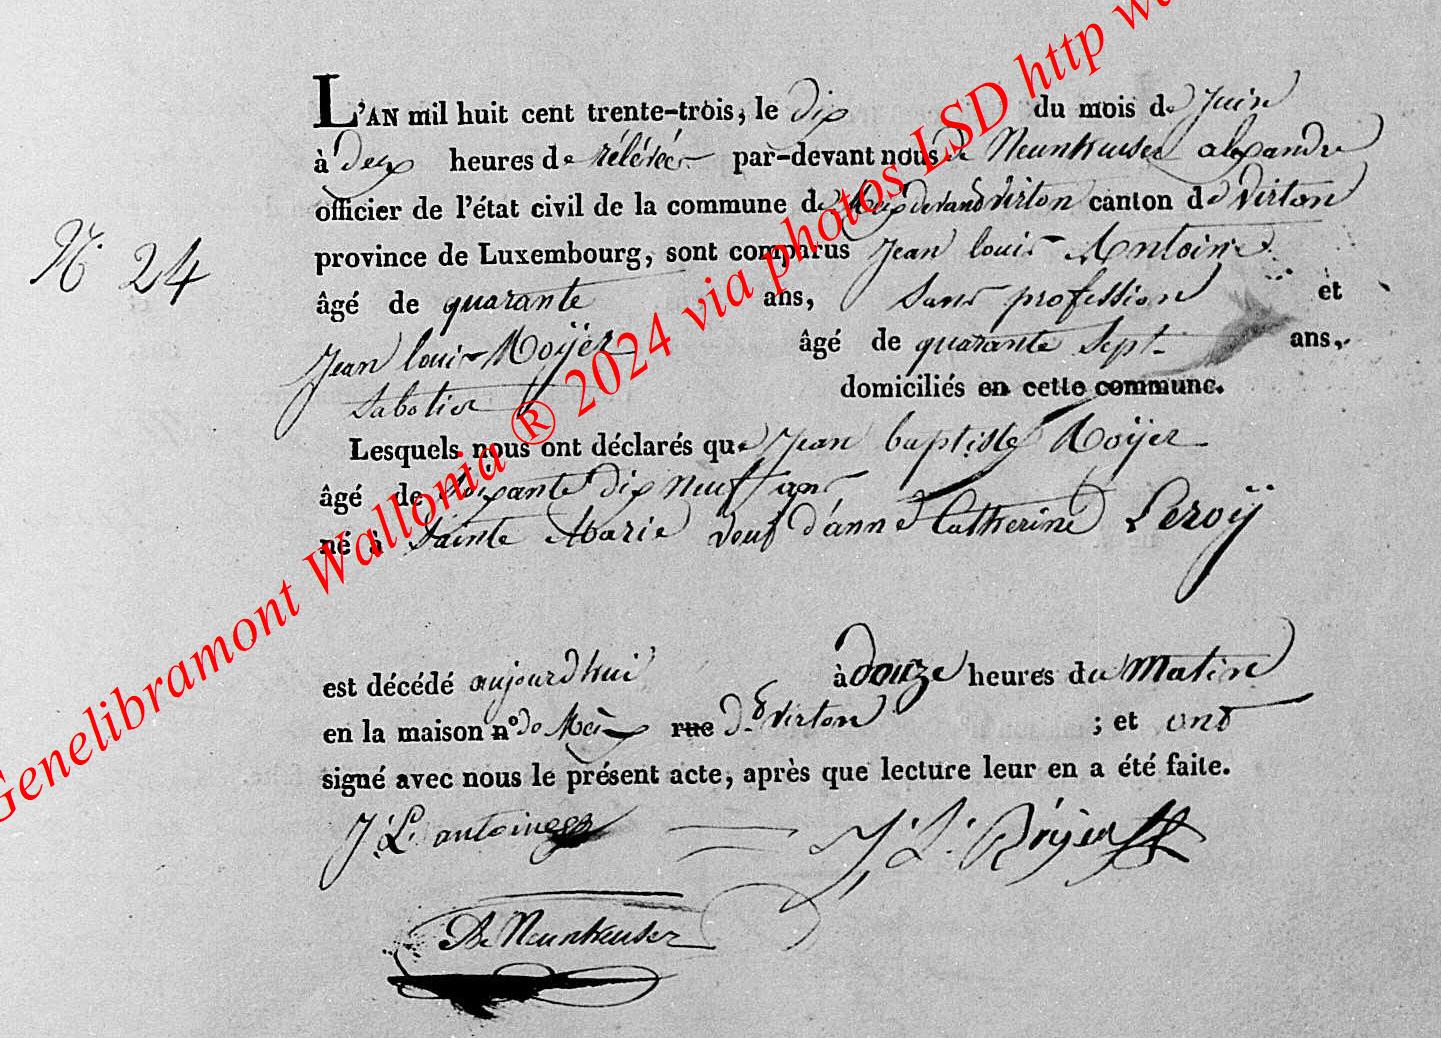 L'AN mil huit cent trente-trois, le dix du mois de Juin
à deux heures de rélévée par-devant nous de Neunheuser alexandre
officier de l'état civil de la commune de Meix devand Virton canton de Virton
N. 24
province de Luxembourg, sont comparus Jean louis Antoine
âgé de quarante ans, Sans profession et
Jean louis Royër âgé de quarante Sept ans,
Sabotier domiciliés en cette commune.
Lesquels nous ont déclarés que Jean baptiste Royer
âgé de soixante dix neuf ans
né à Sainte Marie veuf d'anne Catherine Leroÿ
est décédé aujourd'hui à douze heures du Matin
en la maison n° de Meix rue dt Virton ; et ont
signé avec nous le présent acte, après que lecture leur en a été faite.
J. L. antoine J. L. Röyer
De Neunheuser
Genelibramont Wallonia ® 2024 via photos LSD http